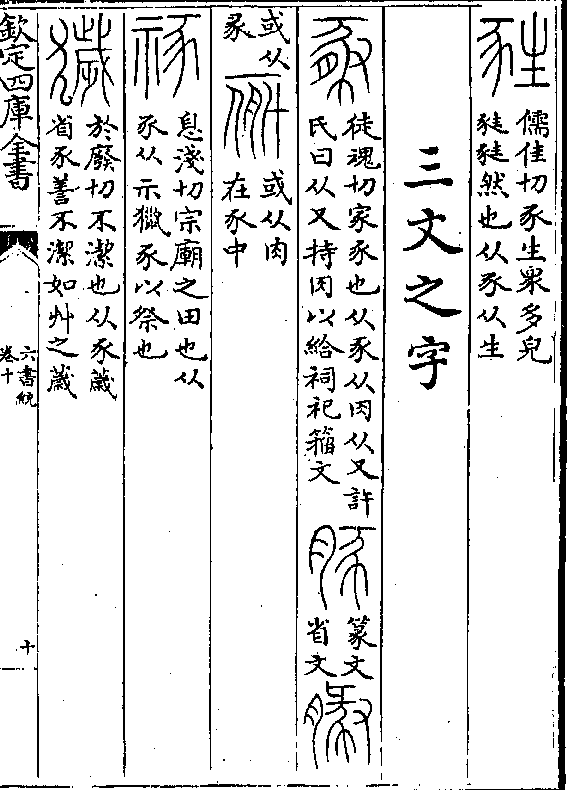 儒佳切豕生眾多皃
然也从豕从生
三文之字
徒魂切家豕也从豕从肉从又許
氏曰从又持肉以給祠祀籀文
篆文
省文
或从
豕
或从肉
在豕中
息淺切宗廟之田也从
豕从示獵豕以祭也
於廢切不潔也从豕薉
省豕善不潔如艸之薉
欽定四庫全書
六書統
卷十
十